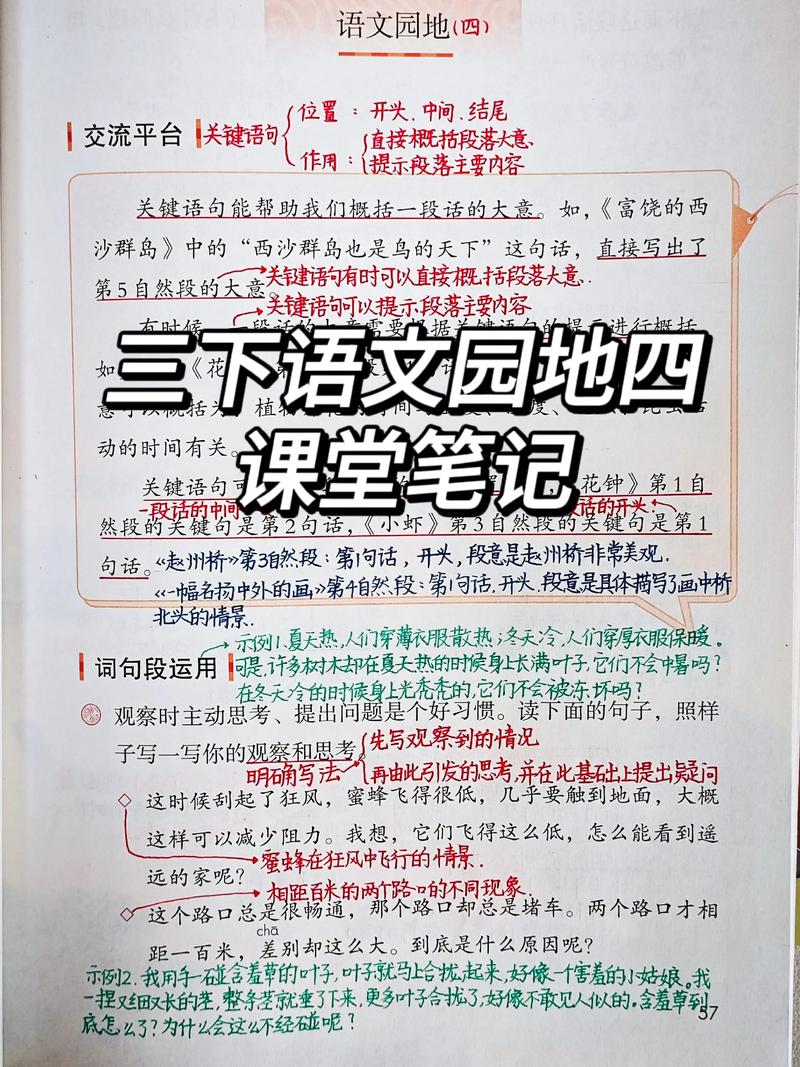 语文园地(四)
位置：开头、中间、结尾
交流平台 关键语句
直接概括段落大意、
作用：提示段落主要内容
关键语句能帮助我们概括一段话的大意。如，《富饶的西
沙群岛》中的“西沙群岛也是鸟的天下”这句话，直接写出了
第5自然段的大意。关键语句有时可以直接概括段落大意.
关键语句可以提示段落主要内容
有时候
三下语文园地四
课堂笔记
动的时间有关。
关键语句可 花钟》第1自
一段话的中间 话的开头
然段的关键句是第2句话，《小虾》第3自然段的关键句是第1
句话。《赵州桥》第3自然段：第1句话，开头，段意是赵州桥非常美观.
《一幅名扬中外的画》第4自然段：第1句话.开头.段意是具体描写了画中桥
北头的情景.
示例1.夏天热,人们穿薄衣服散热；冬天冷,人们穿厚衣服保暖。
词句段运用 可是,许多树木却在夏天热的时候身上长满叶子,它们不会中暑吗？
在冬天冷的时候身上光秃秃的,它们不会被冻坏吗？
观察时主动思考、提出问题是个好习惯。读下面的句子，照样
子写一写你的观察和思考。先写观察到的情况
明确写法 再由此引发的思考,并在此基础上提出疑问
这时候刮起了狂风，蜜蜂飞得很低，几乎要触到地面，大概
这样可以减少阻力。我想，它们飞得这么低，怎么能看到遥
蜜蜂在狂风中飞行的情景.
远的家呢？
相距百米的两个路口的不同现象.
这个路口总是很畅通，那个路口却总是堵车。两个路口才相
chā
距一百米，差别却这么大。到底是什么原因呢？
示例2.我用手一碰含羞草的叶子,叶子就马上合拢起来,好像一个害羞的小姑娘。我
一捏又细又长的茎,整条茎就垂了下来,更多叶子合拢了,好像不敢见人似的。含羞草到
底怎么了？为什么会这么不经碰呢？
57